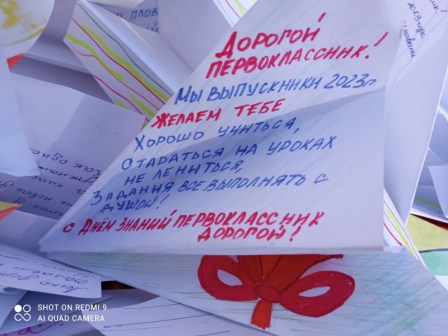 ДОРОГОЙ
ПЕРВОКЛАССНИК!
МЫ ВЫПУСКНИКИ 2023г
ЖЕЛАЕМ ТЕБЕ
ХОРОШО УЧИТЬСЯ,
СТАРАТЬСЯ НА УРОКАХ
НЕ ЛЕНИТЬСЯ,
ЗАДАНИЯ ВСЕ ВЫПОЛНЯТЬ С
ДУШОЙ!
С ДНЁМ ЗНАНИЙ ПЕРВОКЛАССНИК
ДОРОГОЙ!
SHOT ON REDMI 9
AI QUAD CAMERA